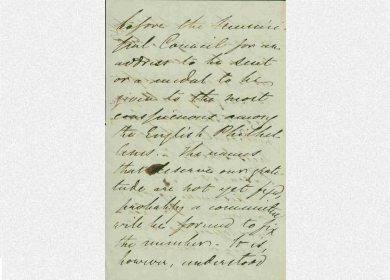 before the
Council for an
address to be sent
or a medal to be
given to the most
conspicuous among
the English Philhel
lenes. The names
that deserve our grati
tude are not yet fixed,
probably a committee
will be formed to fix
the number. It is,
however, understood